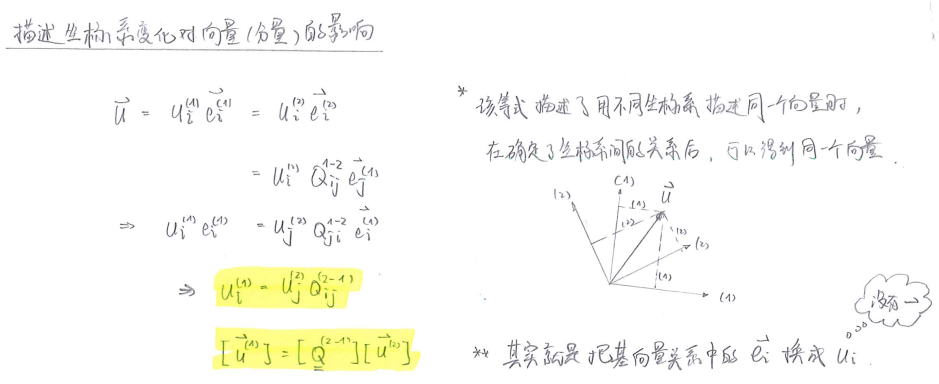 描述坐标系变化对向量(分量)的影响
u⃗ = uᵢ⁽¹⁾ e⃗ᵢ⁽¹⁾ = uᵢ⁽²⁾ e⃗ᵢ⁽²⁾
= uᵢ⁽²⁾ Qᵢⱼ¹⁻² e⃗ⱼ⁽¹⁾
⇒ uᵢ⁽¹⁾ eᵢ⁽¹⁾ = uⱼ⁽²⁾ Qⱼᵢ¹⁻² e⃗ᵢ⁽¹⁾
⇒ uᵢ⁽¹⁾ = uⱼ⁽²⁾ Qᵢⱼ⁽²⁻¹⁾
[u⃗⁽¹⁾] = [Q⁽²⁻¹⁾][u⃗⁽²⁾]
* 该等式描述了用不同坐标系描述同一个向量时,
在确定了坐标系间的关系后, 可以得到同一个向量.
(2) (1) u⃗
(1)
(2) (2)
(2)
(1)
(1)
没有→
** 其实就是把基向量关系中的 e⃗ᵢ 换成 uᵢ.